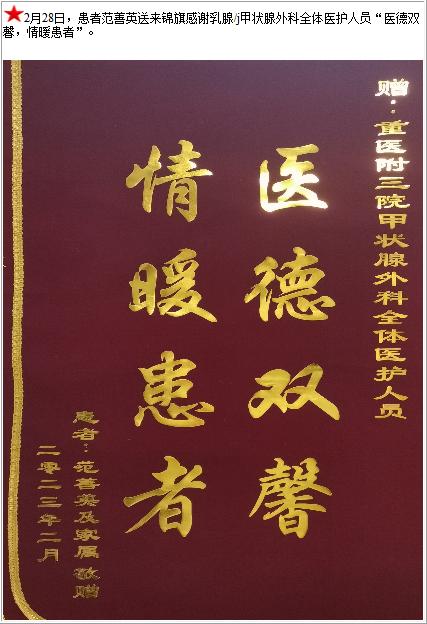 2月28日，患者范善英送来锦旗感谢乳腺/j甲状腺外科全体医护人员“医德双
馨，情暖患者”。
赠：重医附三院甲状腺外科全体医护人员
医德双馨
情暖患者
患者：范善英及家属 敬赠
二零二三年二月